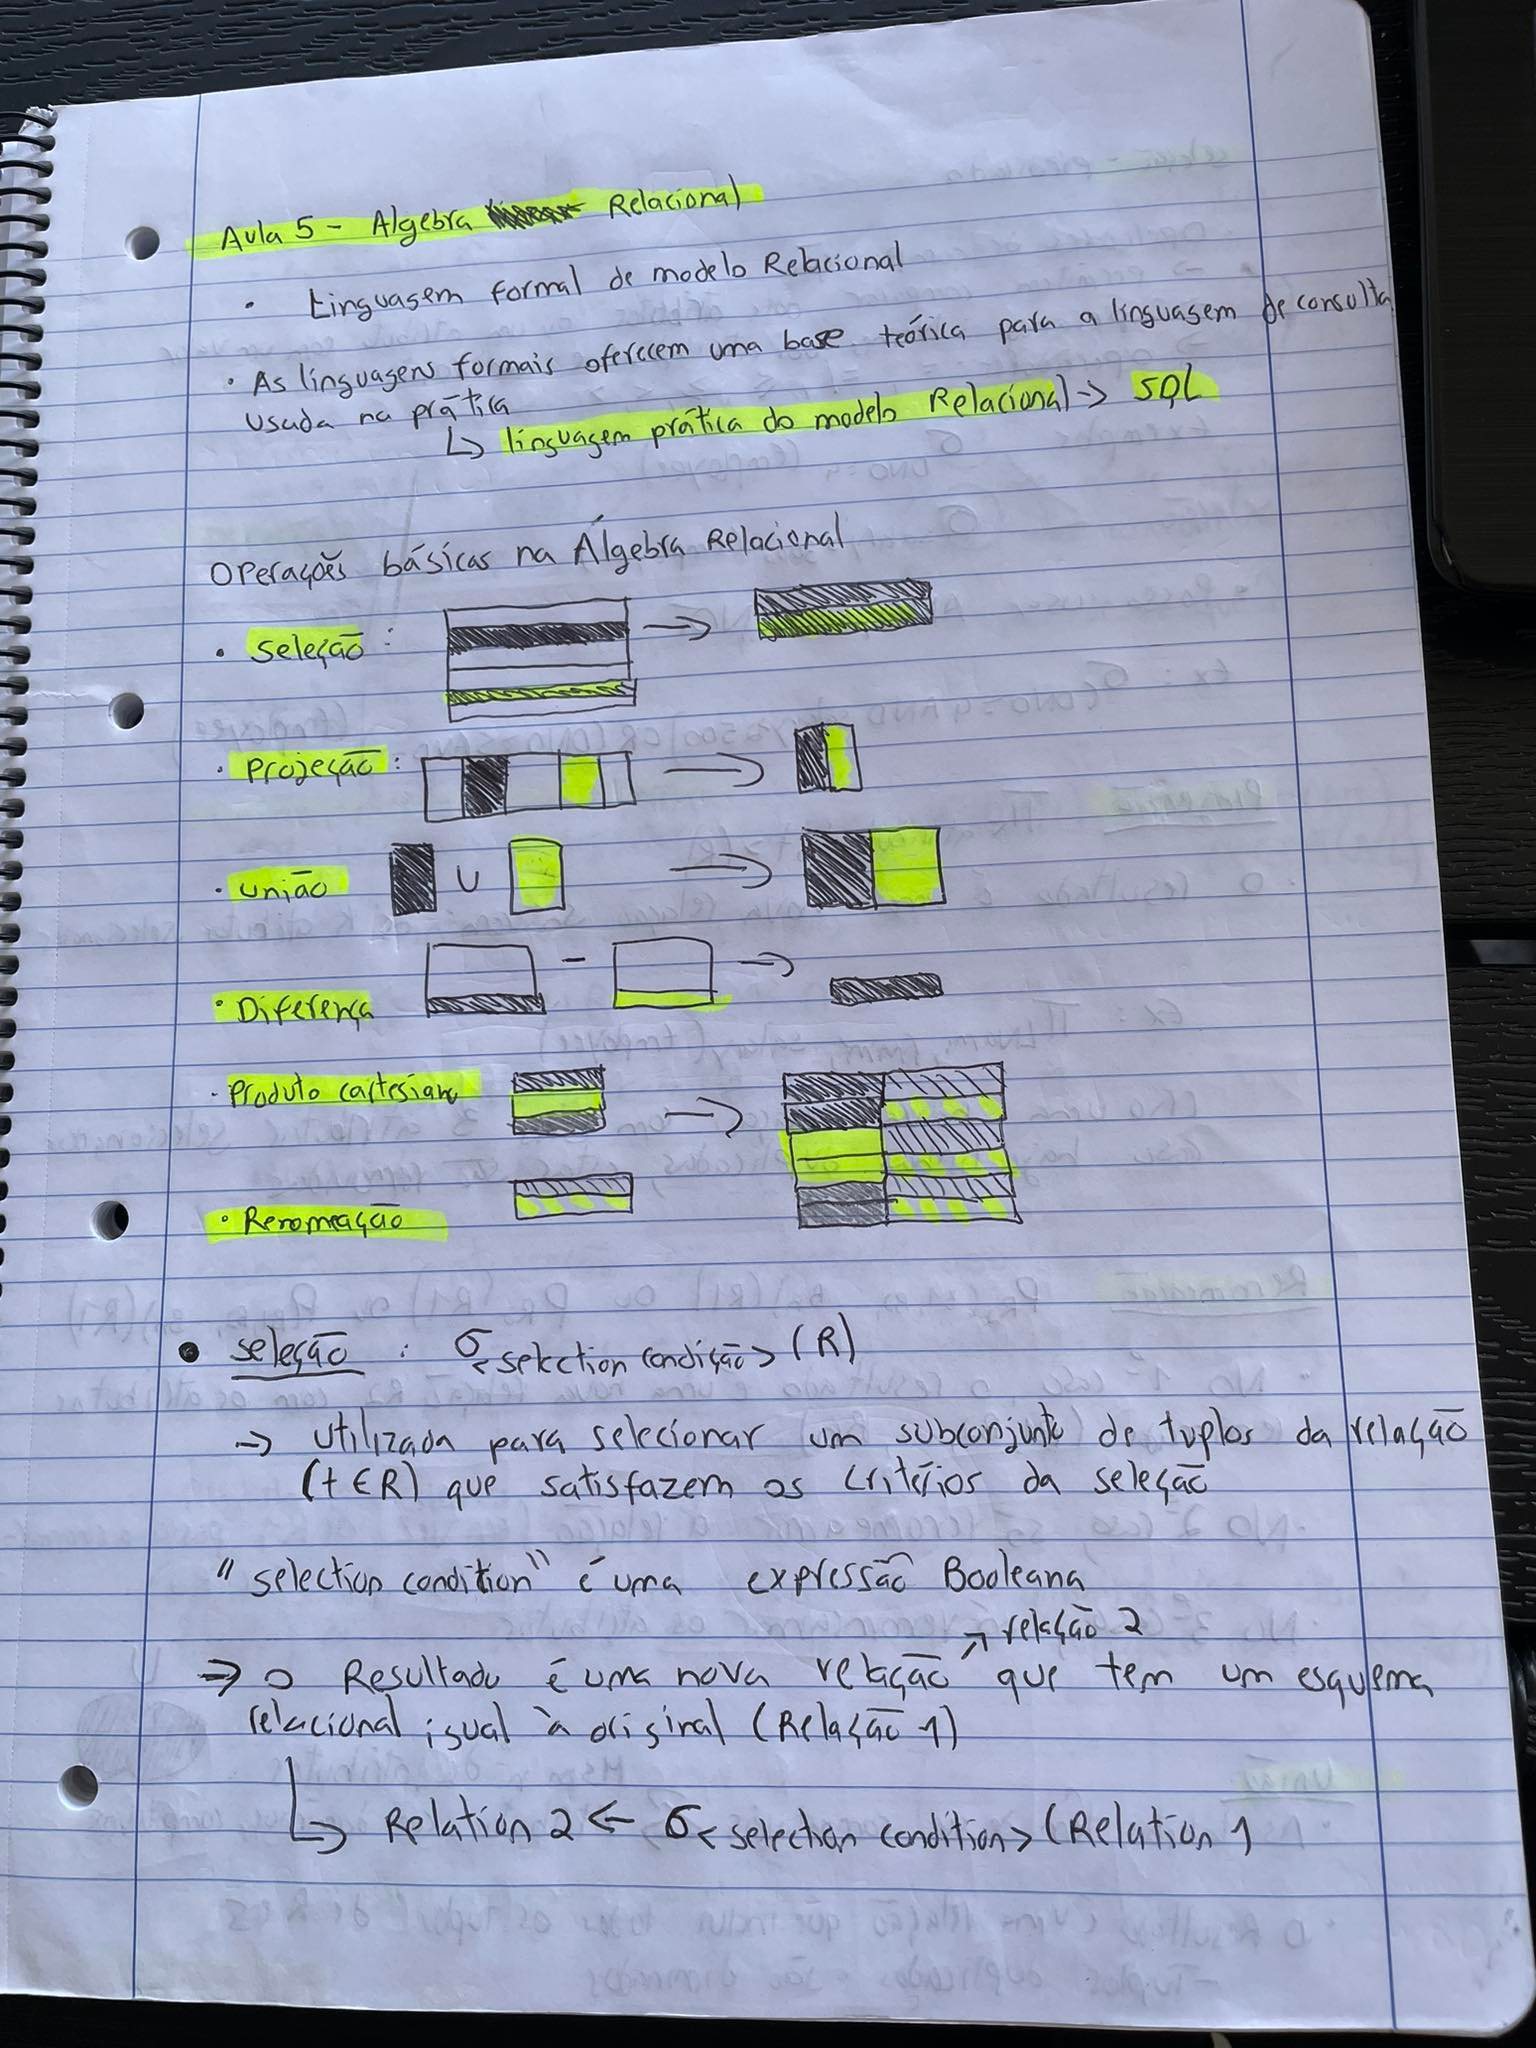 Aula 5 - Algebra Relacional
• Linguagem formal de modelo Relacional
• As linguagens formais oferecem uma base teórica para a linguagem de consulta
usada na prática
↳ linguagem prática do modelo Relacional → SQL
Operações básicas na Álgebra Relacional
• Seleção:
• Projeção:
• União U
• Diferença -
• Produto cartesiano
• Renomeação
• seleção: σ<selection condição>(R)
→ utilizada para selecionar um subconjunto de tuplos da relação
(t∈R) que satisfazem os critérios da seleção
"selection condition" é uma expressão Booleana
↗ relação 2
⇒ O Resultado é uma nova relação que tem um esquema
relacional igual à original (Relação 1)
↳ Relation 2 ← σ<selection condition>(Relation 1